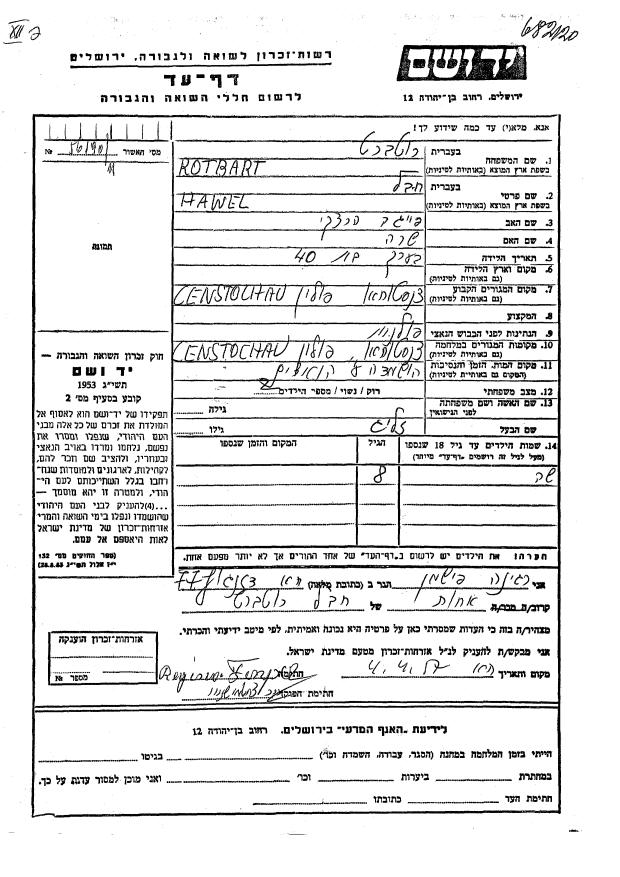 682120
יד ושם
ירושלים, רחוב בן־יהודה 12
רשות־זכרון לשואה ולגבורה, ירושלים
דף־עד
לרשום חללי השואה והגבורה
אנא, מלא(י) עד כמה שידוע לך!
מס׳ האשור
№
תמונה
1. שם המשפחה
בעברית רוטברט
בשפת ארץ המוצא (באותיות לטיניות) ROTBART
2. שם פרטי
בעברית חבל
בשפת ארץ המוצא (באותיות לטיניות) HAWEL
3. שם האב
4. שם האם שרה
5. תאריך הלידה בערך בת 40
6. מקום וארץ הלידה
(גם באותיות לטיניות)
7. מקום המגורים הקבוע
(גם באותיות לטיניות) צ'נסטוחאו פולין CENSTOCHAU
8. המקצוע
9. הנתינות לפני הכבוש הנאצי פולנית
10. מקומות המגורים במלחמה
(גם באותיות לטיניות) צ'נסטוחאו, פולין CENSTOCHAU
11. מקום המות, הזמן והנסיבות
(המקום גם באותיות לטיניות)
12. מצב משפחתי
רוק / נשוי / מספר הילדים
13. שם האשה ושם משפחתה
לפני הנישואין
גילה
שם הבעל זליג
גילו
14. שמות הילדים עד גיל 18 שנספו
(מעל לגיל זה רושמים ״דף־עד״ מיוחד)
הגיל
המקום והזמן שנספו
8
חוק זכרון השואה והגבורה —
יד ושם
תשי״ג 1953
קובע בסעיף מס׳ 2
תפקידו של יד־ושם הוא לאסוף אל
המולדת את זכרם של כל אלה מבני
העם היהודי, שנפלו ומסרו את
נפשם, נלחמו ומרדו באויב הנאצי
ובעוזריו, ולהציב שם וזכר להם,
לקהילות, לארגונים ולמוסדות שנח־
רבו בגלל השתייכותם לעם הי־
הודי, ולמטרה זו יהא מוסמך —
...(4)להעניק לבני העם היהודי
שהושמדו ונפלו בימי השואה והמרי
אזרחות־זכרון של מדינת ישראל
לאות היאספם אל עמם.
(ספר החוקים מס׳ 132
י״ז אלול תשי״ג 28.8.53)
הערה: את הילדים יש לרשום ב״דף־העד״ של אחד ההורים אך לא יותר מפעם אחת.
אני רגינה פישמן הגר ב (כתובת מלאה)
קרוב/ה מכר/ה אחות של חבל רוטברט
מצהיר/ה בזה כי העדות שמסרתי כאן על פרטיה היא נכונה ואמיתית, לפי מיטב ידיעתי והכרתי.
אני מבקש/ת להעניק לנ״ל אזרחות־זכרון מטעם מדינת ישראל.
מקום ותאריך
חתימה
חתימת הפוקד
אזרחות־זכרון הוענקה
מספר №
לידיעת ״האגף המדעי״ בירושלים, רחוב בן־יהודה 12
הייתי בזמן המלחמה במחנה (הסגר, עבודה, השמדה וכו׳) בגיטו
במחתרת ביערות וכו׳ ואני מוכן למסור עדות על כך.
חתימת העד כתובתו